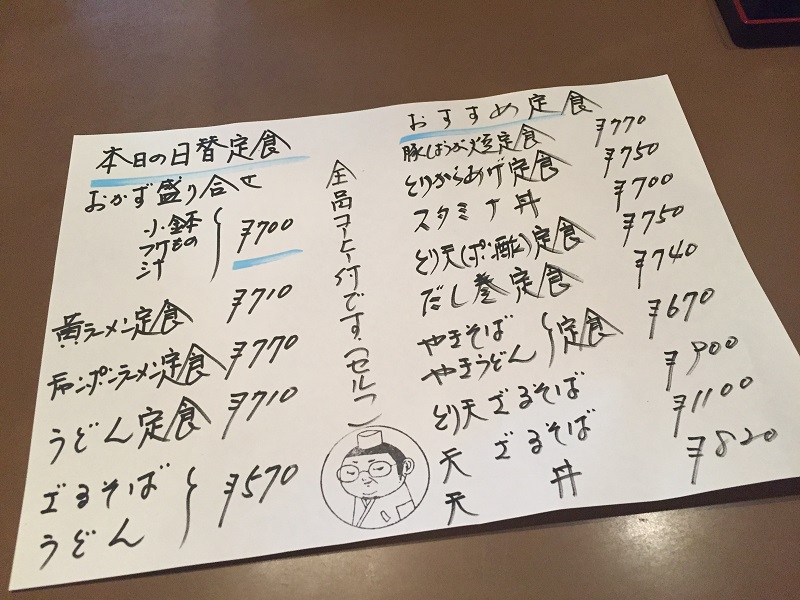 本日の日替定食
おかず盛り合せ
小鉢
つけもの
汁
¥700
黄ラーメン定食 ¥710
チャンポンラーメン定食 ¥770
うどん定食 ¥710
ざるそば
うどん
¥570
全品コーヒー付です。(セルフ)
おすすめ定食
豚しょうが焼定食 ¥770
とりからあげ定食 ¥750
スタミナ丼 ¥700
とり天(ポン酢)定食 ¥750
だし巻定食 ¥740
やきそば
やきうどん
定食 ¥670
とり天ざるそば ¥900
天ざるそば ¥1100
天丼 ¥820